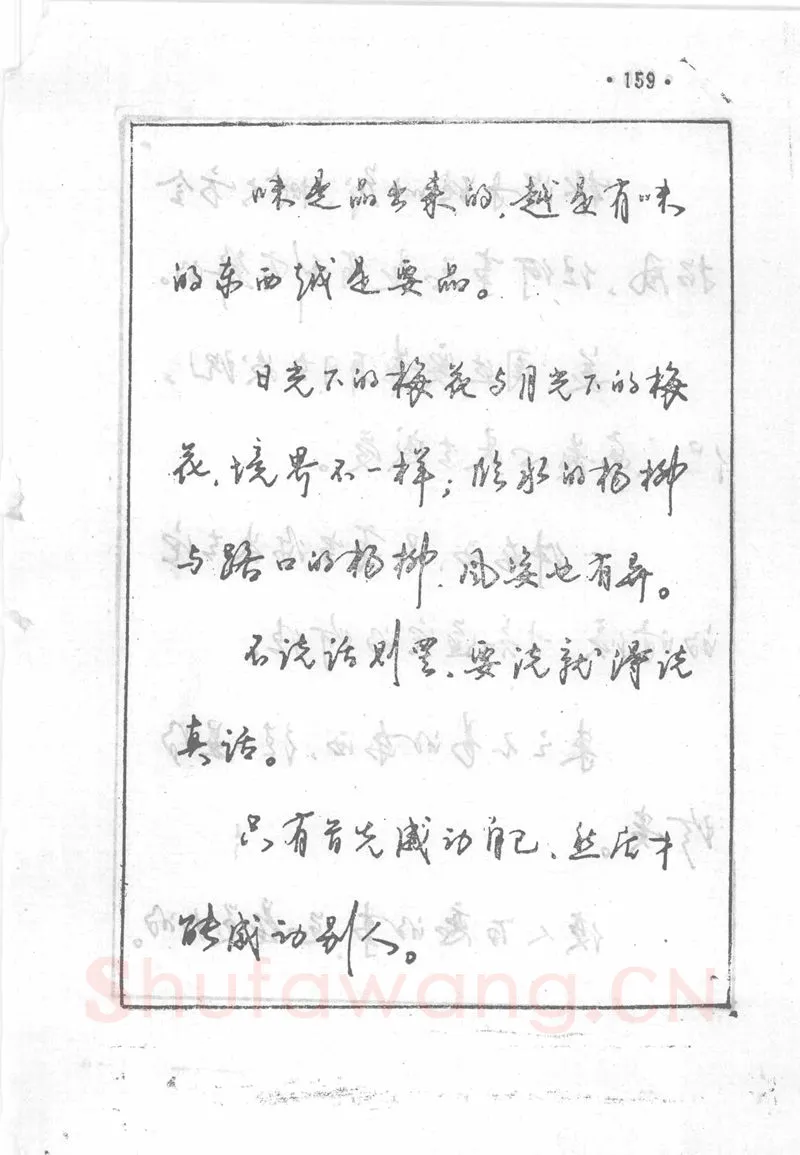 ·159·
味是品出来的,越是有味
的东西越是要品。
日光下的梅花与月光下的梅
花,境界不一样;临水的杨柳
与路口的杨柳,风姿也有异。
不说话则罢,要说就得说
真话。
只有首先感动自己,然后才
能感动别人。
Shufawang.CN